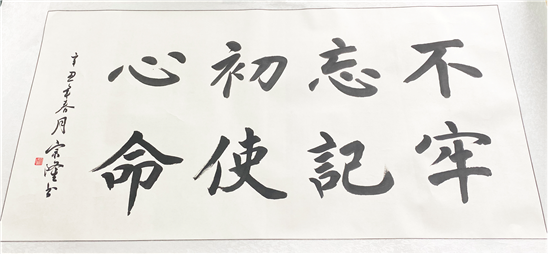 不忘初心
牢記使命
辛丑年春月